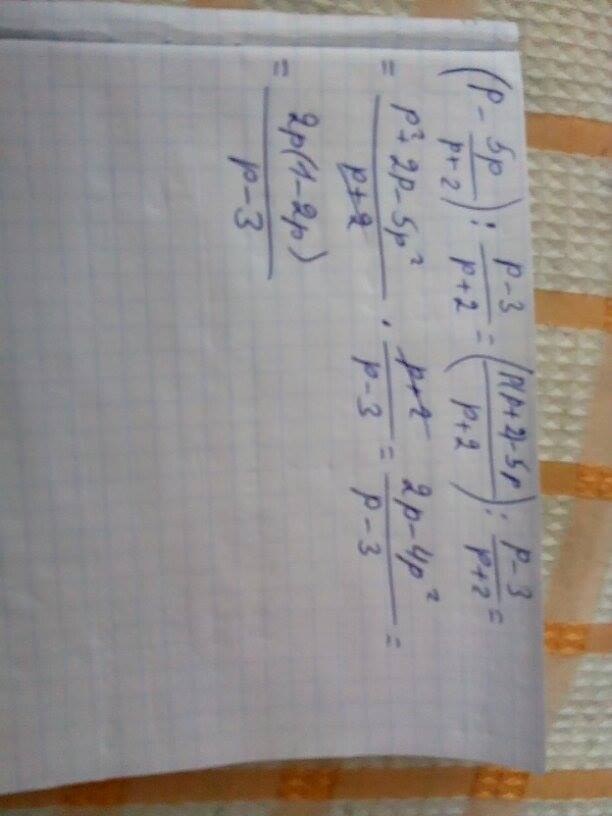 (p - 5p/(p+2)) : (p-3)/(p+2) = ((p(p+2)-5p)/(p+2)) : (p-3)/(p+2) =
= (p²+2p-5p²)/(p+2) · (p+2)/(p-3) = (2p-4p²)/(p-3) =
= 2p(1-2p)/(p-3)